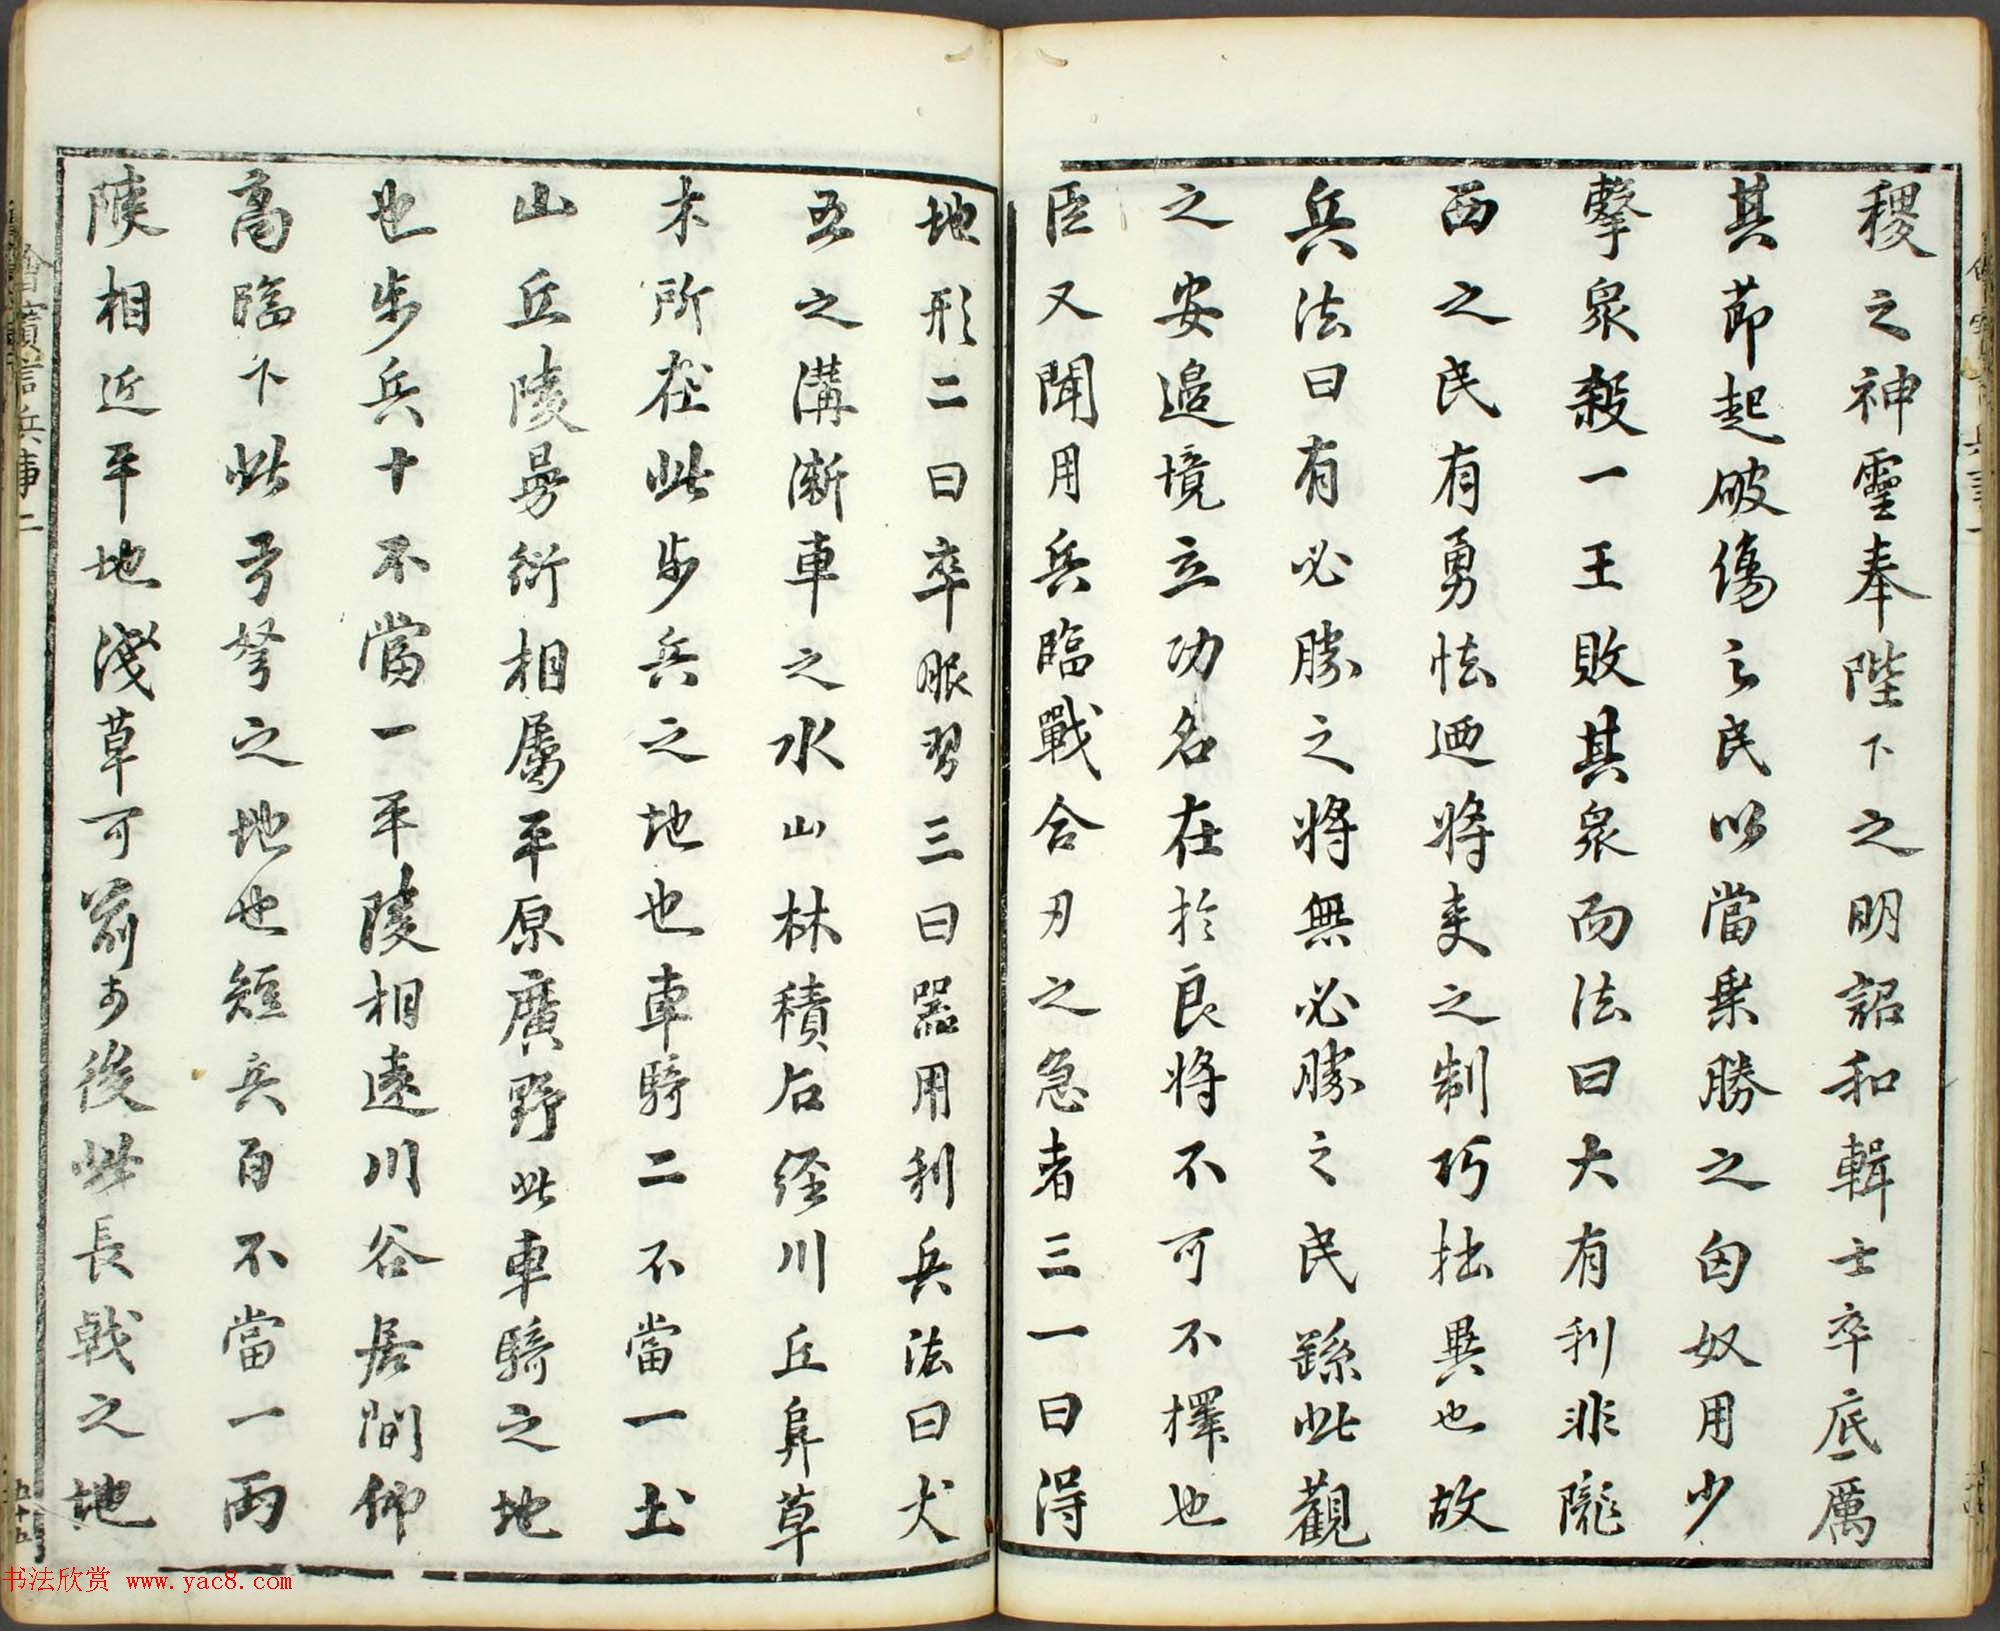 稷之神靈奉陛下之明詔和輯士卒底厲
其節起破傷之民以當乗勝之匈奴用少
擊衆殺一王敗其衆而法曰大有利非隴
西之民有勇怯廼將吏之制巧拙異也故
兵法曰有必勝之將無必勝之民繇此觀
之安邉境立功名在於良將不可不擇也
臣又聞用兵臨戰合刃之急者三一曰得
地形二曰卒服習三曰器用利兵法曰丈
五之溝漸車之水山林積石經川丘阜草
木所在此步兵之地也車騎二不當一土
山丘陵曼衍相屬平原廣野此車騎之地
也步兵十不當一平陵相遠川谷居間仰
高臨下此弓弩之地也短兵百不當一兩
陳相近平地淺草可前可後此長戟之地
言兵事二
五十五
书法欣赏 www.yac8.com